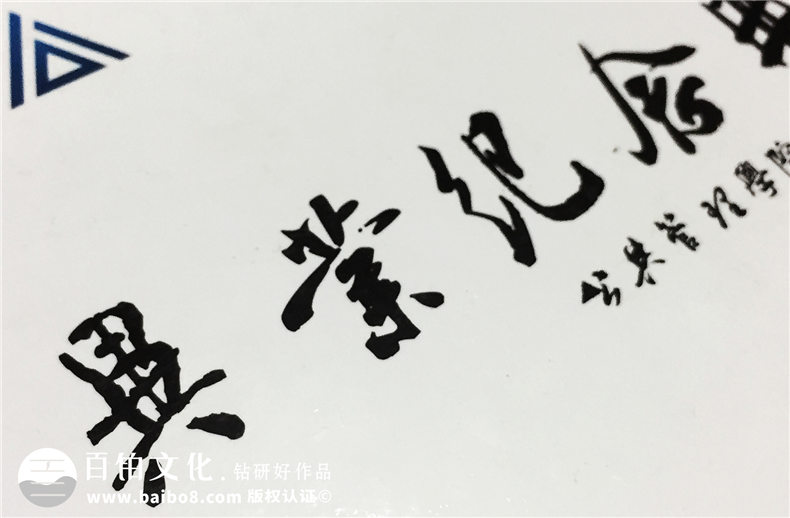 畢業紀念
公共管理學院
百铂文化.钻研好作品
www.baibo8.com 版权认证©